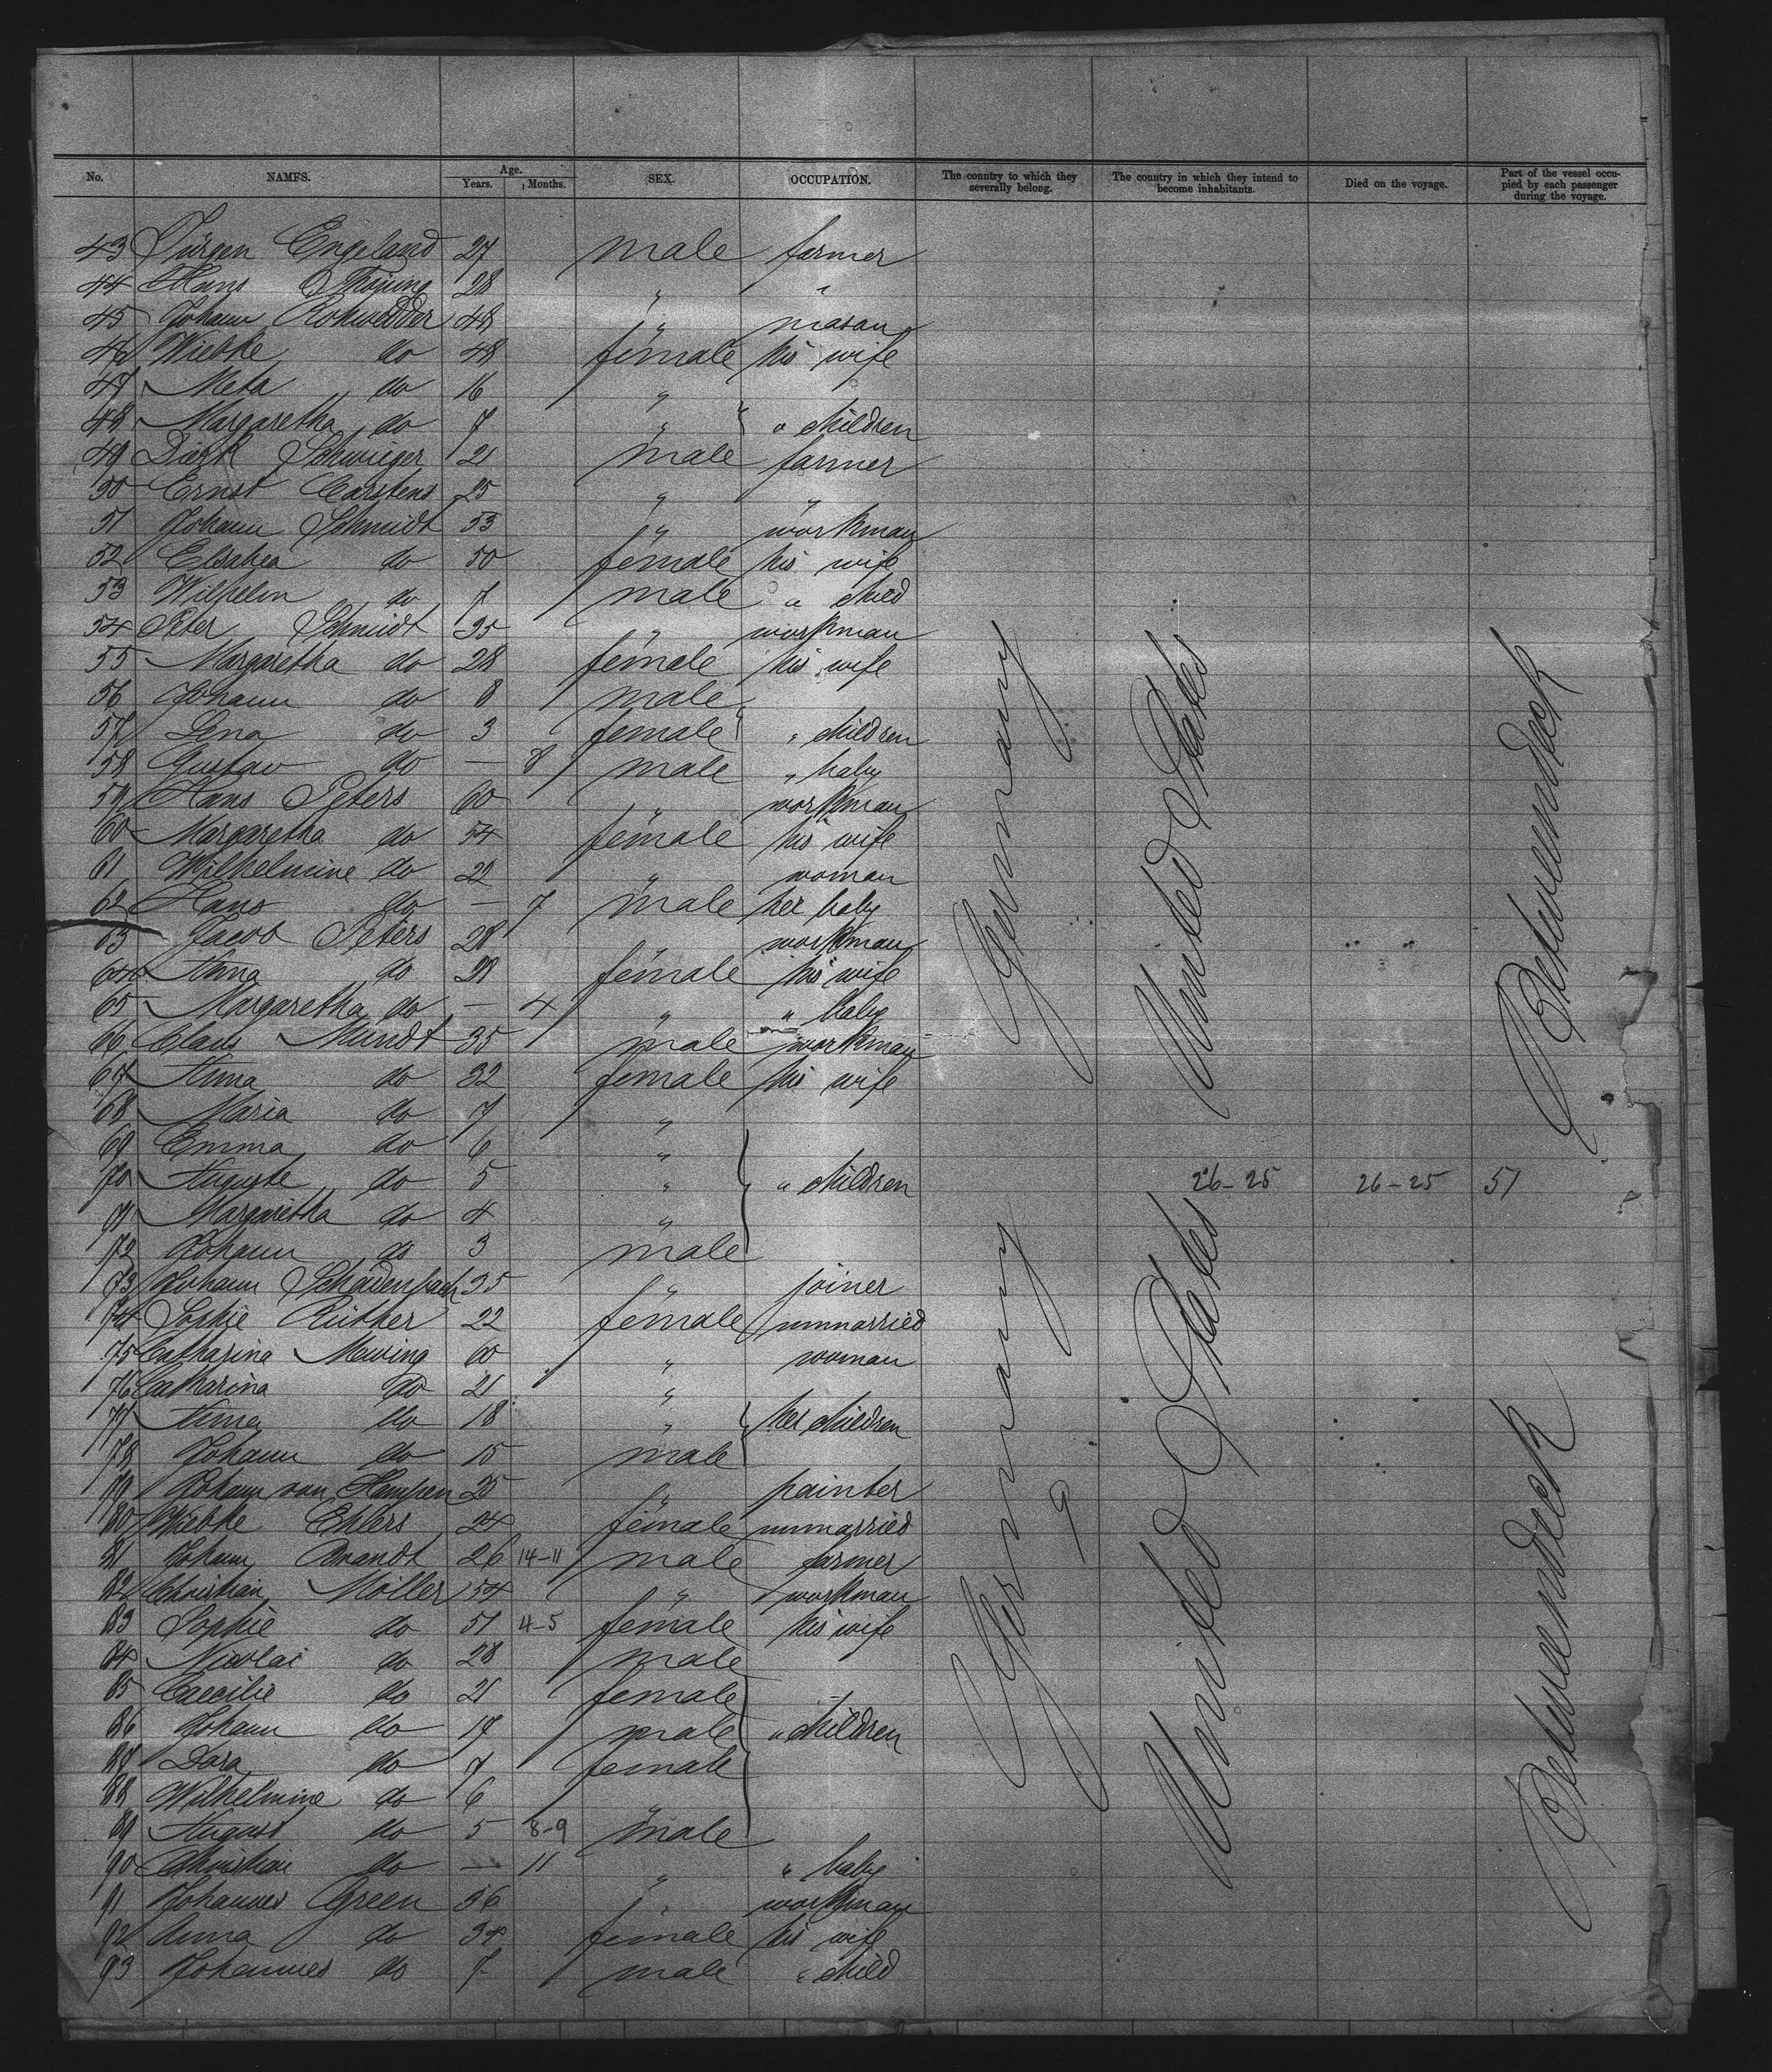 No. NAMES. Age. Years. Months. SEX. OCCUPATION. The country to which they severally belong. The country in which they intend to become inhabitants. Died on the voyage. Part of the vessel occupied by each passenger during the voyage.
43 Jürgen Engeland 27 male farmer
44 Hans Thöming 28 " "
45 Johann Rohwedder 48 " mason
46 Wiebke do 48 female his wife
47 Meta do 16 "
48 Margaretha do 7 " " children
49 Dierk Schwieger 21 male farmer
50 Ernst Carstens 25 " "
51 Johann Schmidt 53 " workman
52 Elsabea do 50 female his wife
53 Wilhelm do 7 male " child
54 Peter Schmidt 35 " workman
55 Margaretha do 28 female his wife
56 Johann do 8 male
57 Lena do 3 female " children
58 Gustav do — 8 male " baby
59 Hans Peters 60 " workman
60 Margaretha do 54 female his wife
61 Wilhelmine do 22 " woman
62 Hans do — 7 male her baby
63 Jacob Peters 28 " workman
64 Anna do 28 female his wife
65 Margaretha do — 4 " " baby
66 Claus Mundt 35 male workman
67 Anna do 32 female his wife
68 Maria do 7 "
69 Emma do 6 "
70 Auguste do 5 " " children 26-25 26-25 51
71 Margaretha do 4 "
72 Johann do 3 male
73 Johann 35 " joiner
74 Sophie Rüther 22 female unmarried
75 Catharina Mewing 60 " woman
76 Catharina do 21 "
77 Anna do 18 " her children
78 Johann do 15 male
79 Johann von Hempen 25 " painter
80 Wiebke Ehlers 24 female unmarried
81 Johann Brandt 26 14-11 male farmer
82 Christian Möller 54 " workman
83 Sophie do 51 4-5 female his wife
84 Nicolai do 28 male
85 Caecilie do 21 female
86 Johann do 17 male " children
87 Dora do 7 female
88 Wilhelmine do 6 "
89 August do 5 8-9 male
90 Christian do — 11 " " baby
91 Johannes Green 36 " workman
92 Anna do 34 female his wife
93 Johannes do 7 male " child
Germany
United States
Betweendeck
Germany
United States
Betweendeck